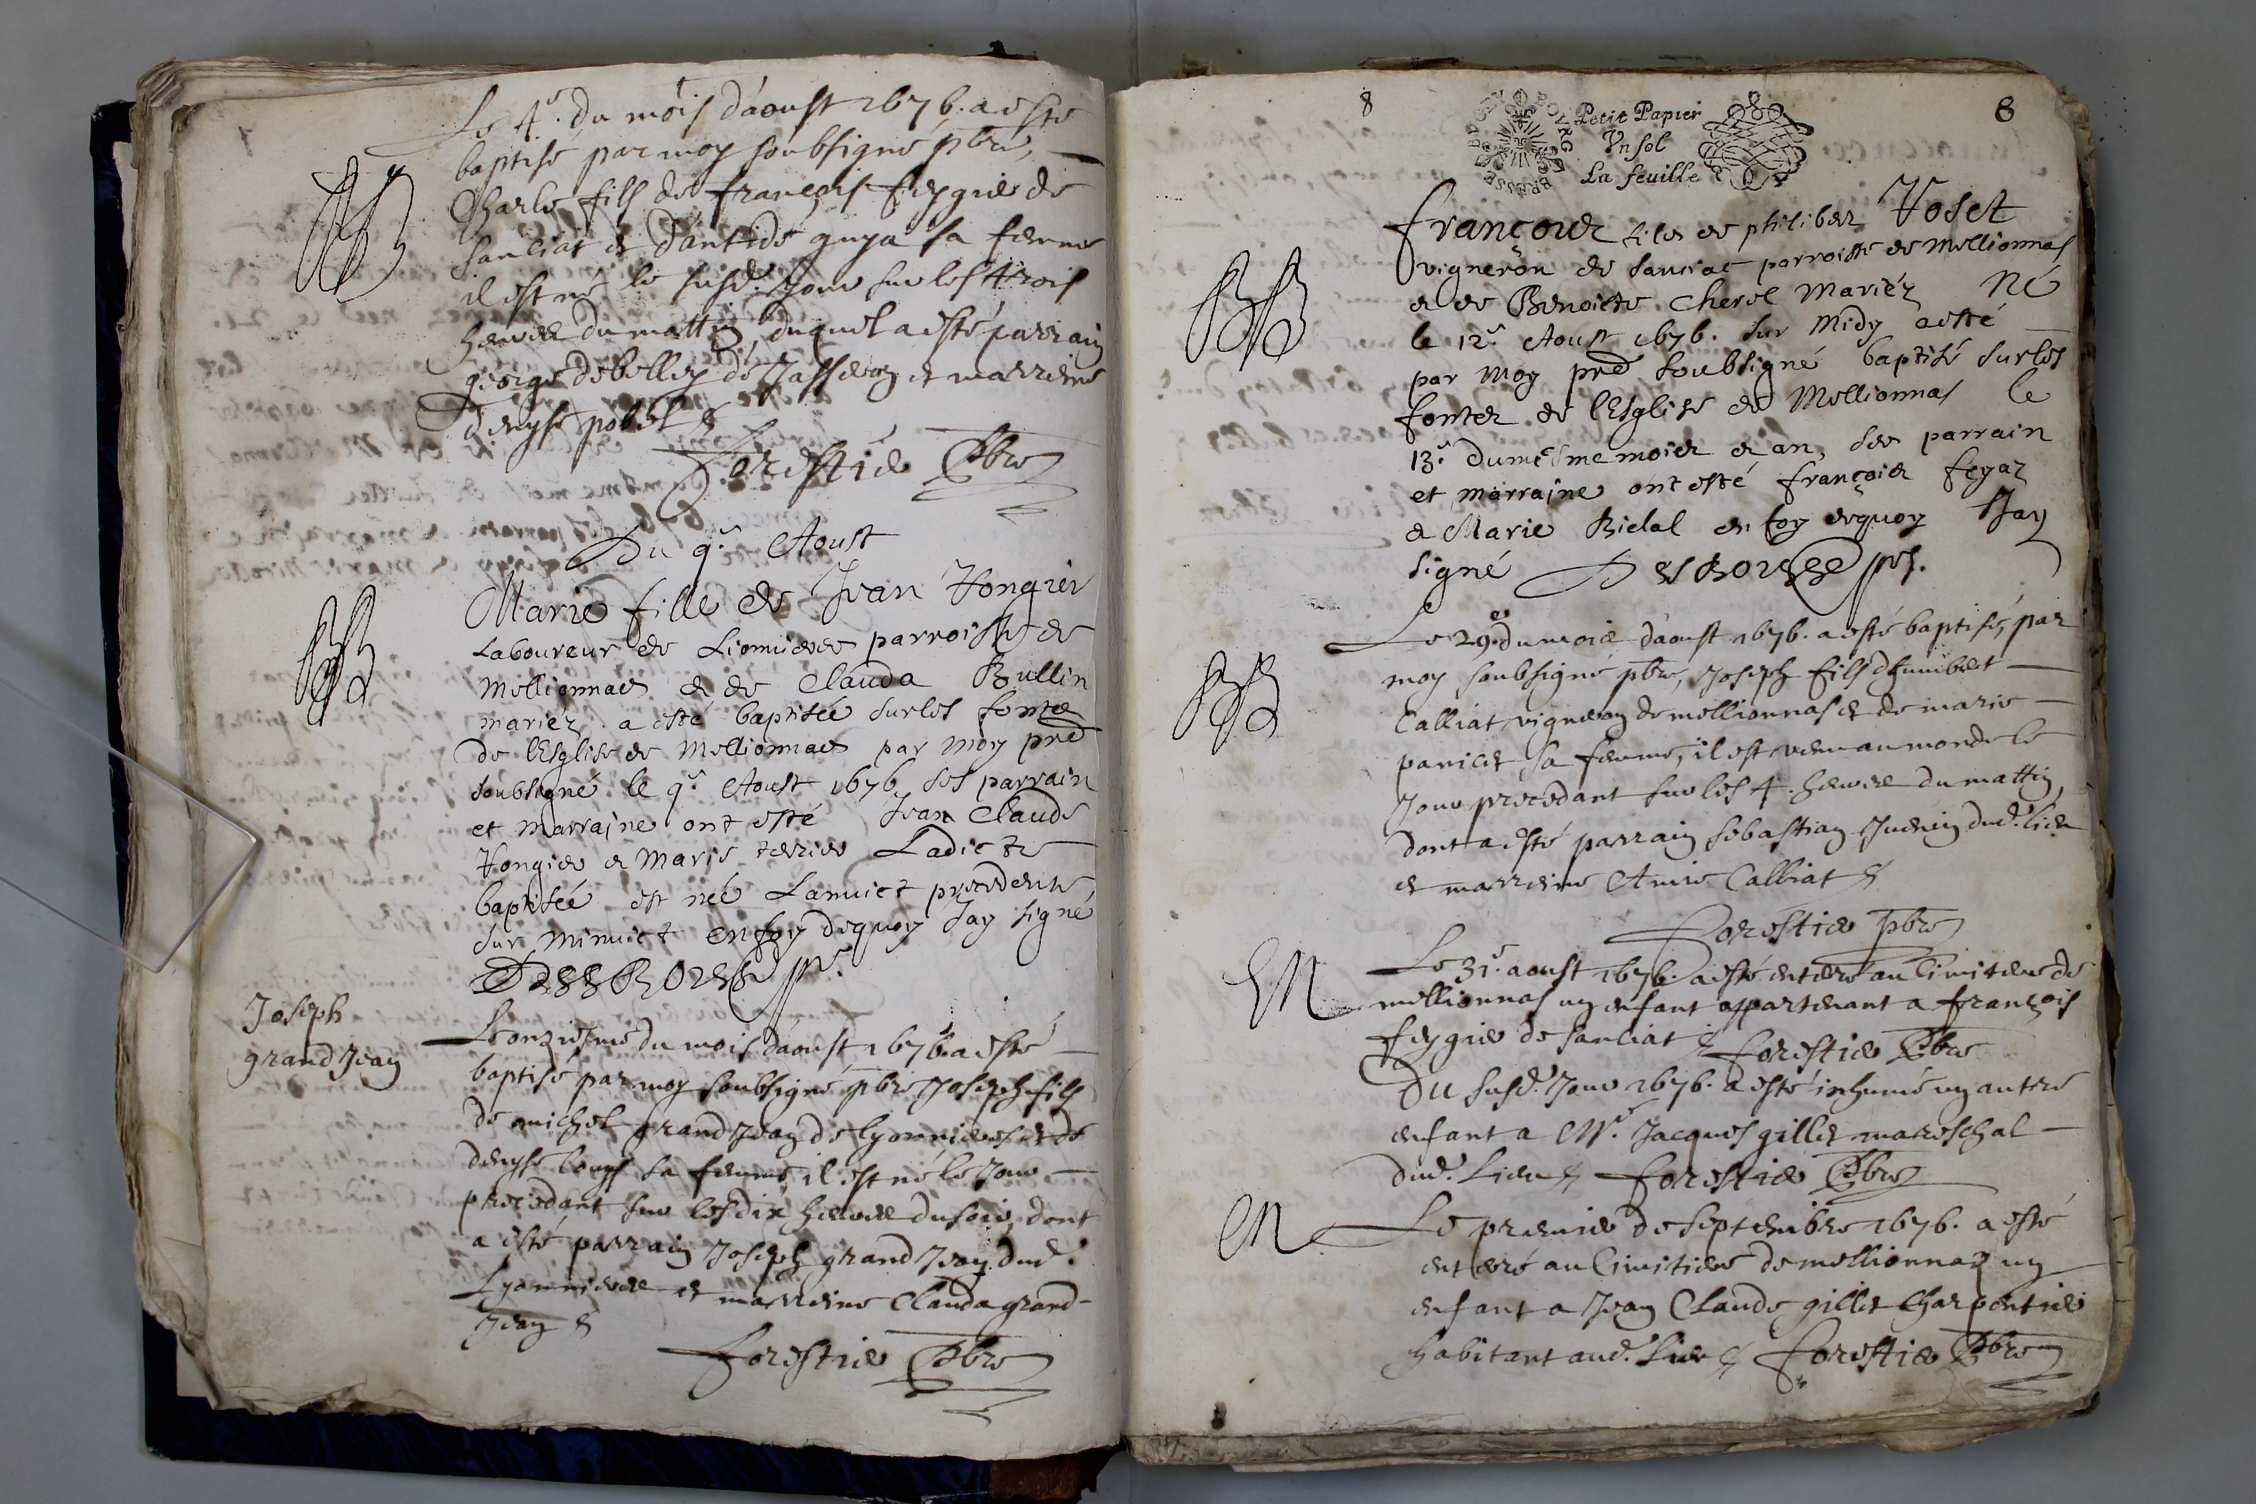 Le 4e. du mois d'aoust 1676. a esté
baptisé par moy soubsigné pbre,
Charle fils de françois feygie de
sanciat et d'antide guya sa femme
il est né le susd. Jour sur les trois
heures du mattin, duquel a esté parrain
george debelley de Jasseron et marreine
denyse pobel
Forestier Pbre
Du 9e. Aoust
Marie fille de Jean Vongier
Laboureur de Liomieres parroisse de
Mellionnas et de Clauda Bullin
mariéz a esté baptisée sur les fonts
de l'Esglise de Mellionnas par moy pred
soubsigné le 9e. Aoust 1676 ses parrain
et marraine ont esté Jean Claude
Vongier et Marie terrier Ladicte
baptisée est née La nuict precedente
sur minuict en foy dequoy Jay signé
DESBORDES pre.
Joseph
grand Jean
Le onziesme du mois d'aoust 1676. a esté
baptisé par moy soubsigné pbre Joseph fils
de michel grand Jean de lyonnieres et de
denyse bouys sa femme, il est né le Jour
precedant sur les dix heures du soir, dont
a esté parrain Joseph grand Jean dud.
Lyonnieres et marreine Clauda grand-
Jean
forestier Pbre
8
8
Petit Papier
Vn sol
La feuille
BOVRG BRESSE BVGEY
françois filz de philiber Voset
vigneron de sanciat parroisse de Mellionnas
et de Benoiste Cherel Mariéz Né
le 12e. Aoust 1676. sur Midy a esté
par moy pred soubsigné baptisé sur les
fontez de l'Esglise de Mellionnas le
13e. du mesme moiez et an, ses parrain
et marraine ont esté françois feyaz
et Marie Bidal en foy dequoy Jay
signé DESBORDES pre.
Le 29e. du mois d'aoust 1676. a esté baptisé, par
moy soubsigné pbre, Joseph fils d'humbert
Calliat vigneron de mellionnas et de marie
panicet sa femme, il est venu au monde le
Jour precedant sur les 4. heures du mattin,
dont a esté parrain sebastian Juenin dud. lieu
et marreine Anne Calliat
Forestier pbre
EN
Le 31e. aoust 1676. a esté enterré au Cimitiere de
mellionnas un enfant appartenant a françois
feygie de sanciat forestier Pbre
Du susd. Jour 1676. a esté inhumé un autre
enfant a Mr. Jacques gillet mareschal
dud. Lieu forestier Pbre
EN
Le premier de septembre 1676. a esté
enterré au Cimitiere de mellionnaz un
enfant a Jean Claude gillet Charpentier
habitant aud. Lieu forestier Pbre